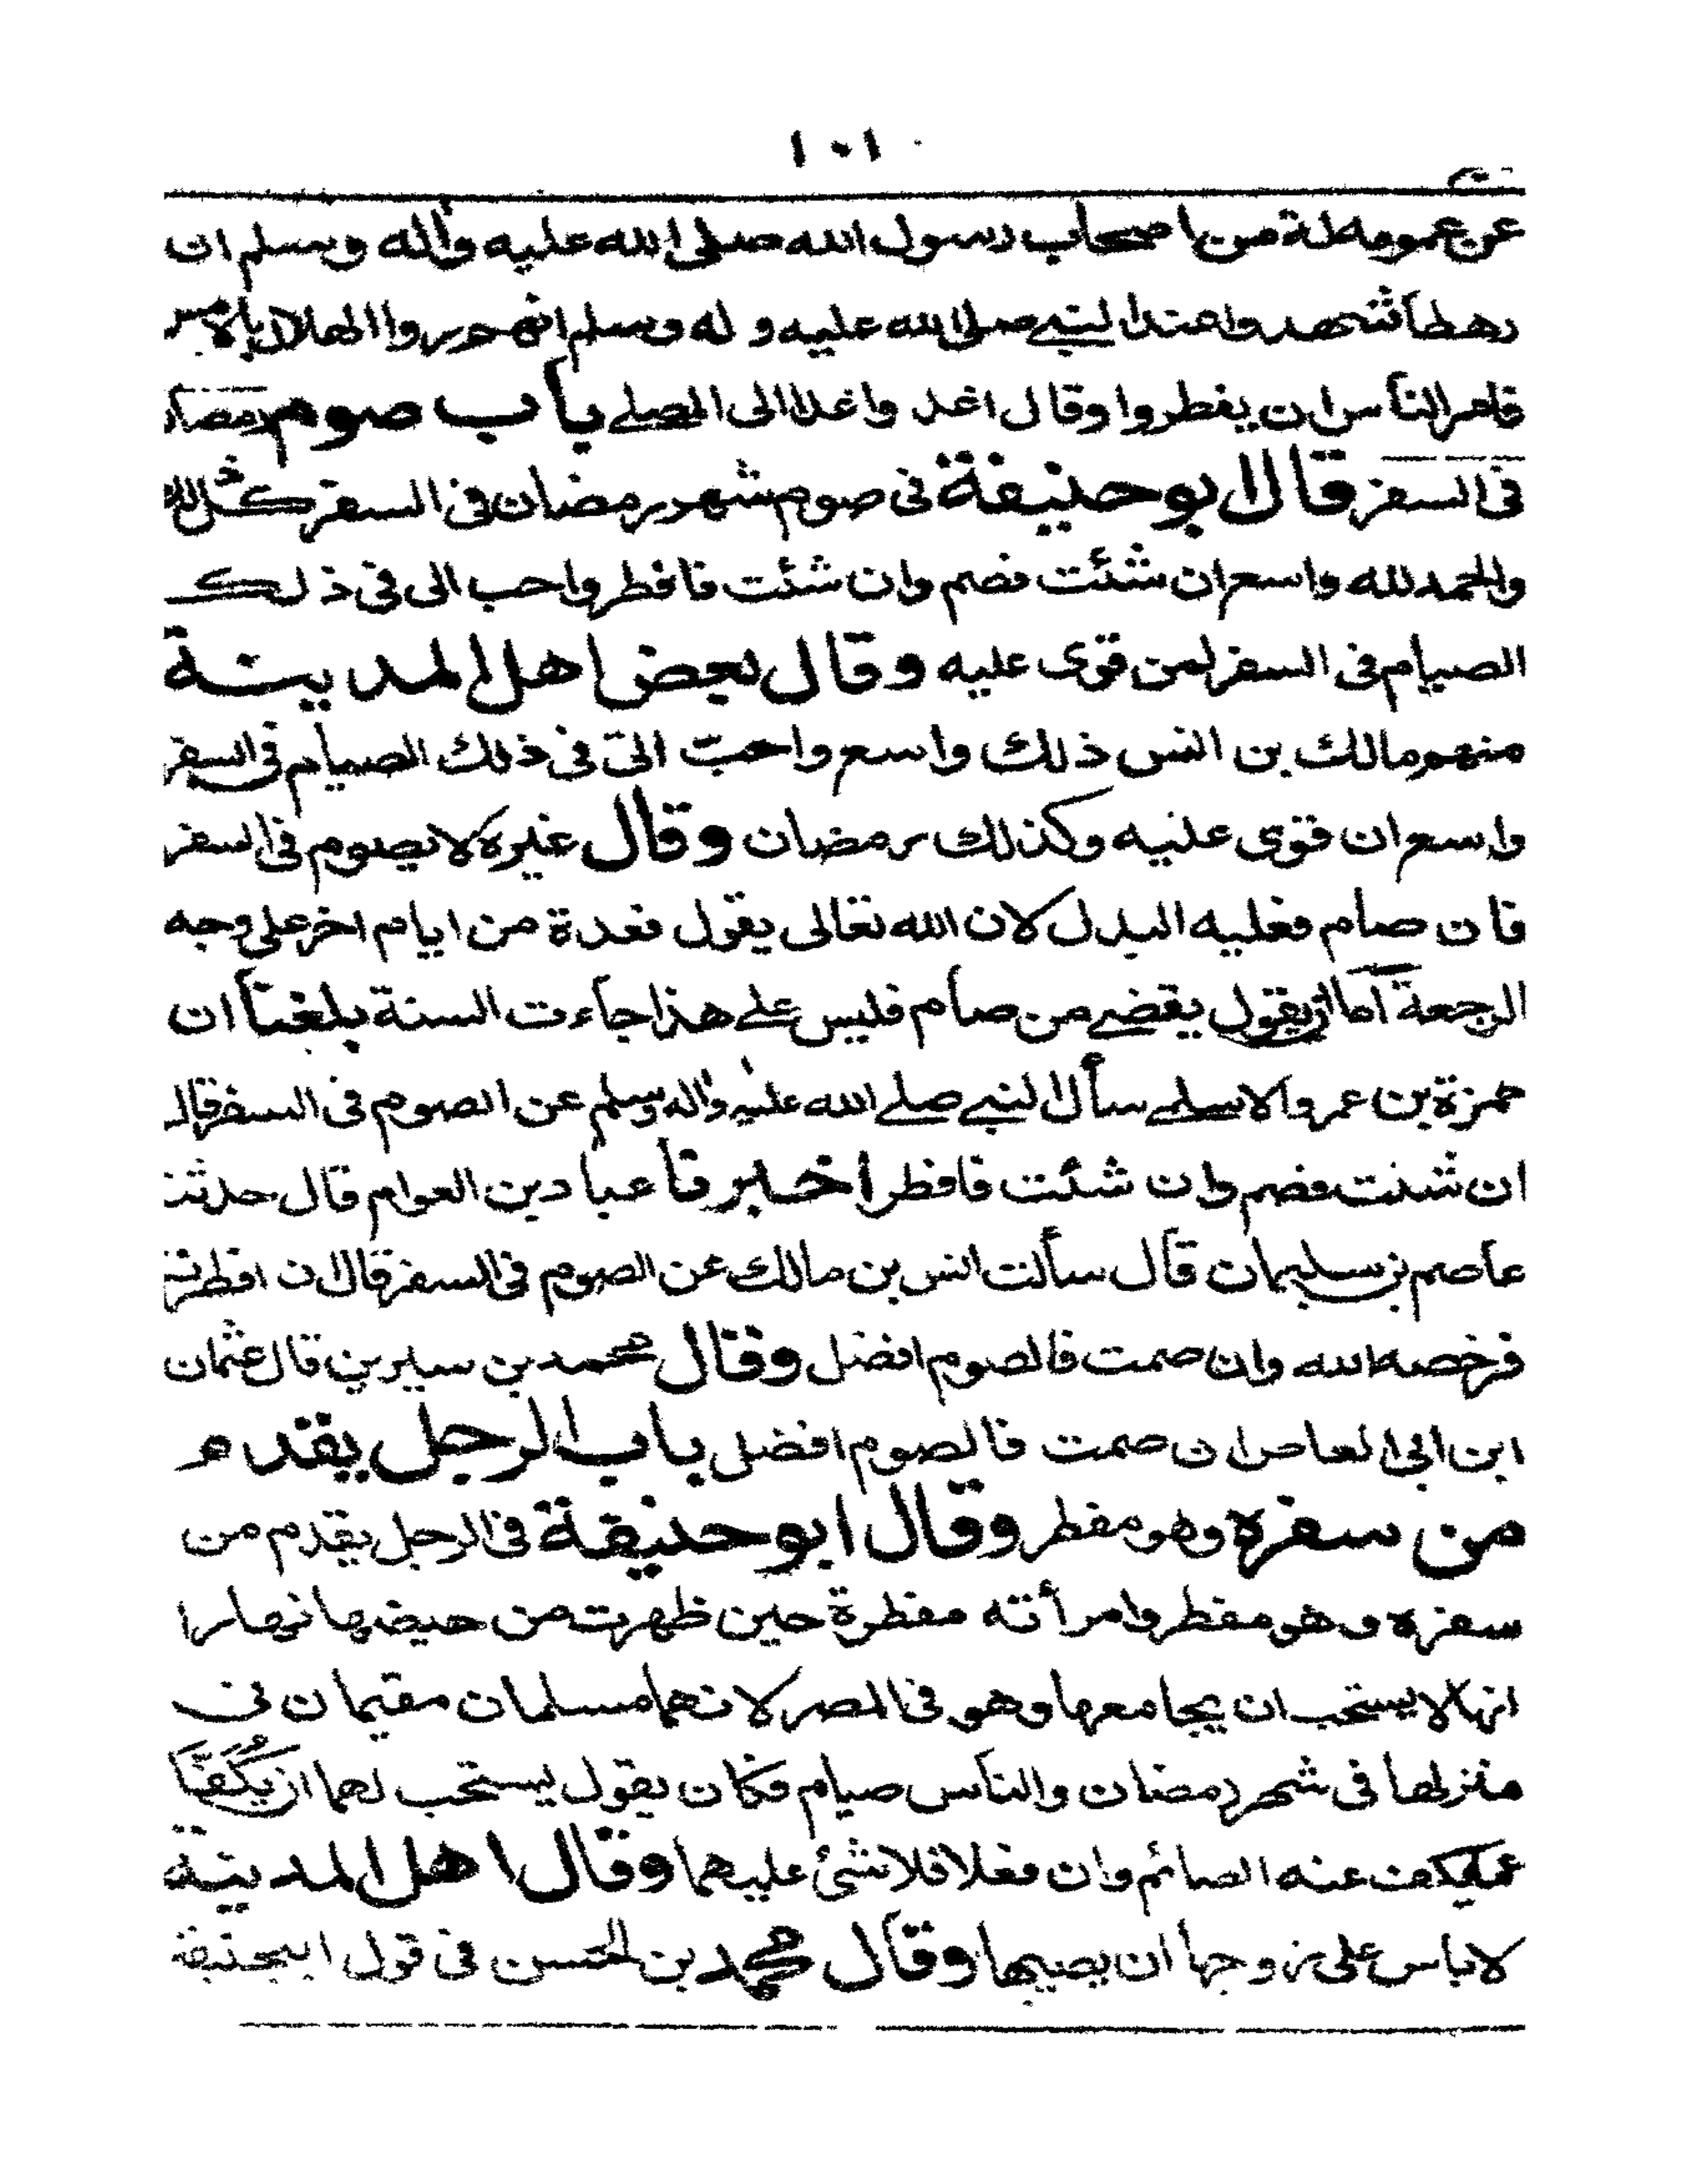 ١٠١
عن عمومة له من اصحاب رسول الله صلى الله عليه واله وسلم ان
رهطا شهدوا عند النبي صلى الله عليه و له وسلم انهم روا الهلال بالامس
فامر الناس ان يفطروا وقال اغد واغدا الى المصلے باب صوم رمضان
فى السفر قال ابو حنيفة فى صوم شهر رمضان فى السفر كل ذلك
والحمد لله واسع ان شئت فصم وان شئت فافطر واحب الى فى ذلك
الصيام فى السفر لمن قوى عليه وقال بعض اهل المدينة
منهم مالك بن انس ذلك واسع واحبّ الىّ فى ذلك الصيام فى السفر
واسع ان قوى عليه وكذلك رمضان وقال غيره لا يصوم فى السفر
فان صام فعليه البدل لان الله تعالى يقول فعدة من ايام اخر على وجه
الرجعة اما ان يقول يقضے من صام فليس علے هذا جاءت السنة بلغنا ان
حمزة بن عمرو الاسلمے سأل النبے صلے الله عليه واله وسلم عن الصوم فى السفر قال
ان شئت فصم وان شئت فافطر اخبرنا عباد بن العوام قال حدثنا
عاصم بن سليمان قال سألت انس بن مالك عن الصوم فى السفر قال ان افطرت
فرخصه الله وان صمت فالصوم افضل وقال محمد بن سيرين قال عثمان
ابن ابى العاص ان صمت فالصوم افضل باب الرجل يقدم
من سفره وهو مفطر وقال ابو حنيفة فى الرجل يقدم من
سفره وهو مفطر وامرأته مفطرة حين ظهرت من حيضها نهارا
انها لا يستحب ان يجامعها وهو فى المصر لانهما مسلمان مقيمان فى
منزلهما فى شهر رمضان والناس صيام فكان يقول يستحب لهما ان يَكُفَّا
عما يكف عنه الصائم وان فعلا فلا شئ عليهما وقال اهل المدينة
لا باس على زوجها ان يصيبها وقال محمد بن الحسن فى قول ابيحنيفة